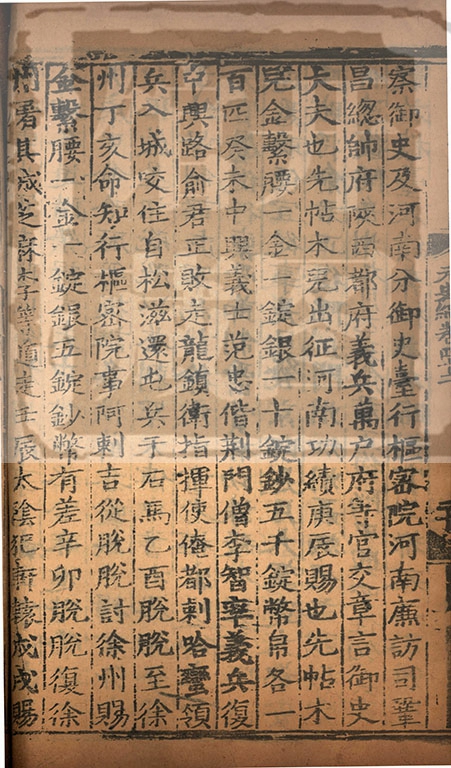 察御史及河南分御史臺行樞密院河南廉訪司鞏
昌總帥府陝西都府義兵萬户府等官交章言御史
大夫也先帖木兒出征河南功績庚辰賜也先帖木
兒金繫腰一金一錠銀一十錠鈔五千錠幣帛各一
百匹癸未中興義士范忠偕荆門僧李智率義兵復
中興路俞君正敗走龍鎮衛指揮使俺都剌哈蠻領
兵入城咬住自松滋還屯兵于石馬乙酉脫脫至徐
州丁亥命知行樞密院事阿剌吉從脫脫討徐州賜
金繫腰一金一錠銀五錠鈔幣有差辛卯脫脫復徐
州屠其城芝麻李等遁走壬辰太陰犯軒轅戊戌賜